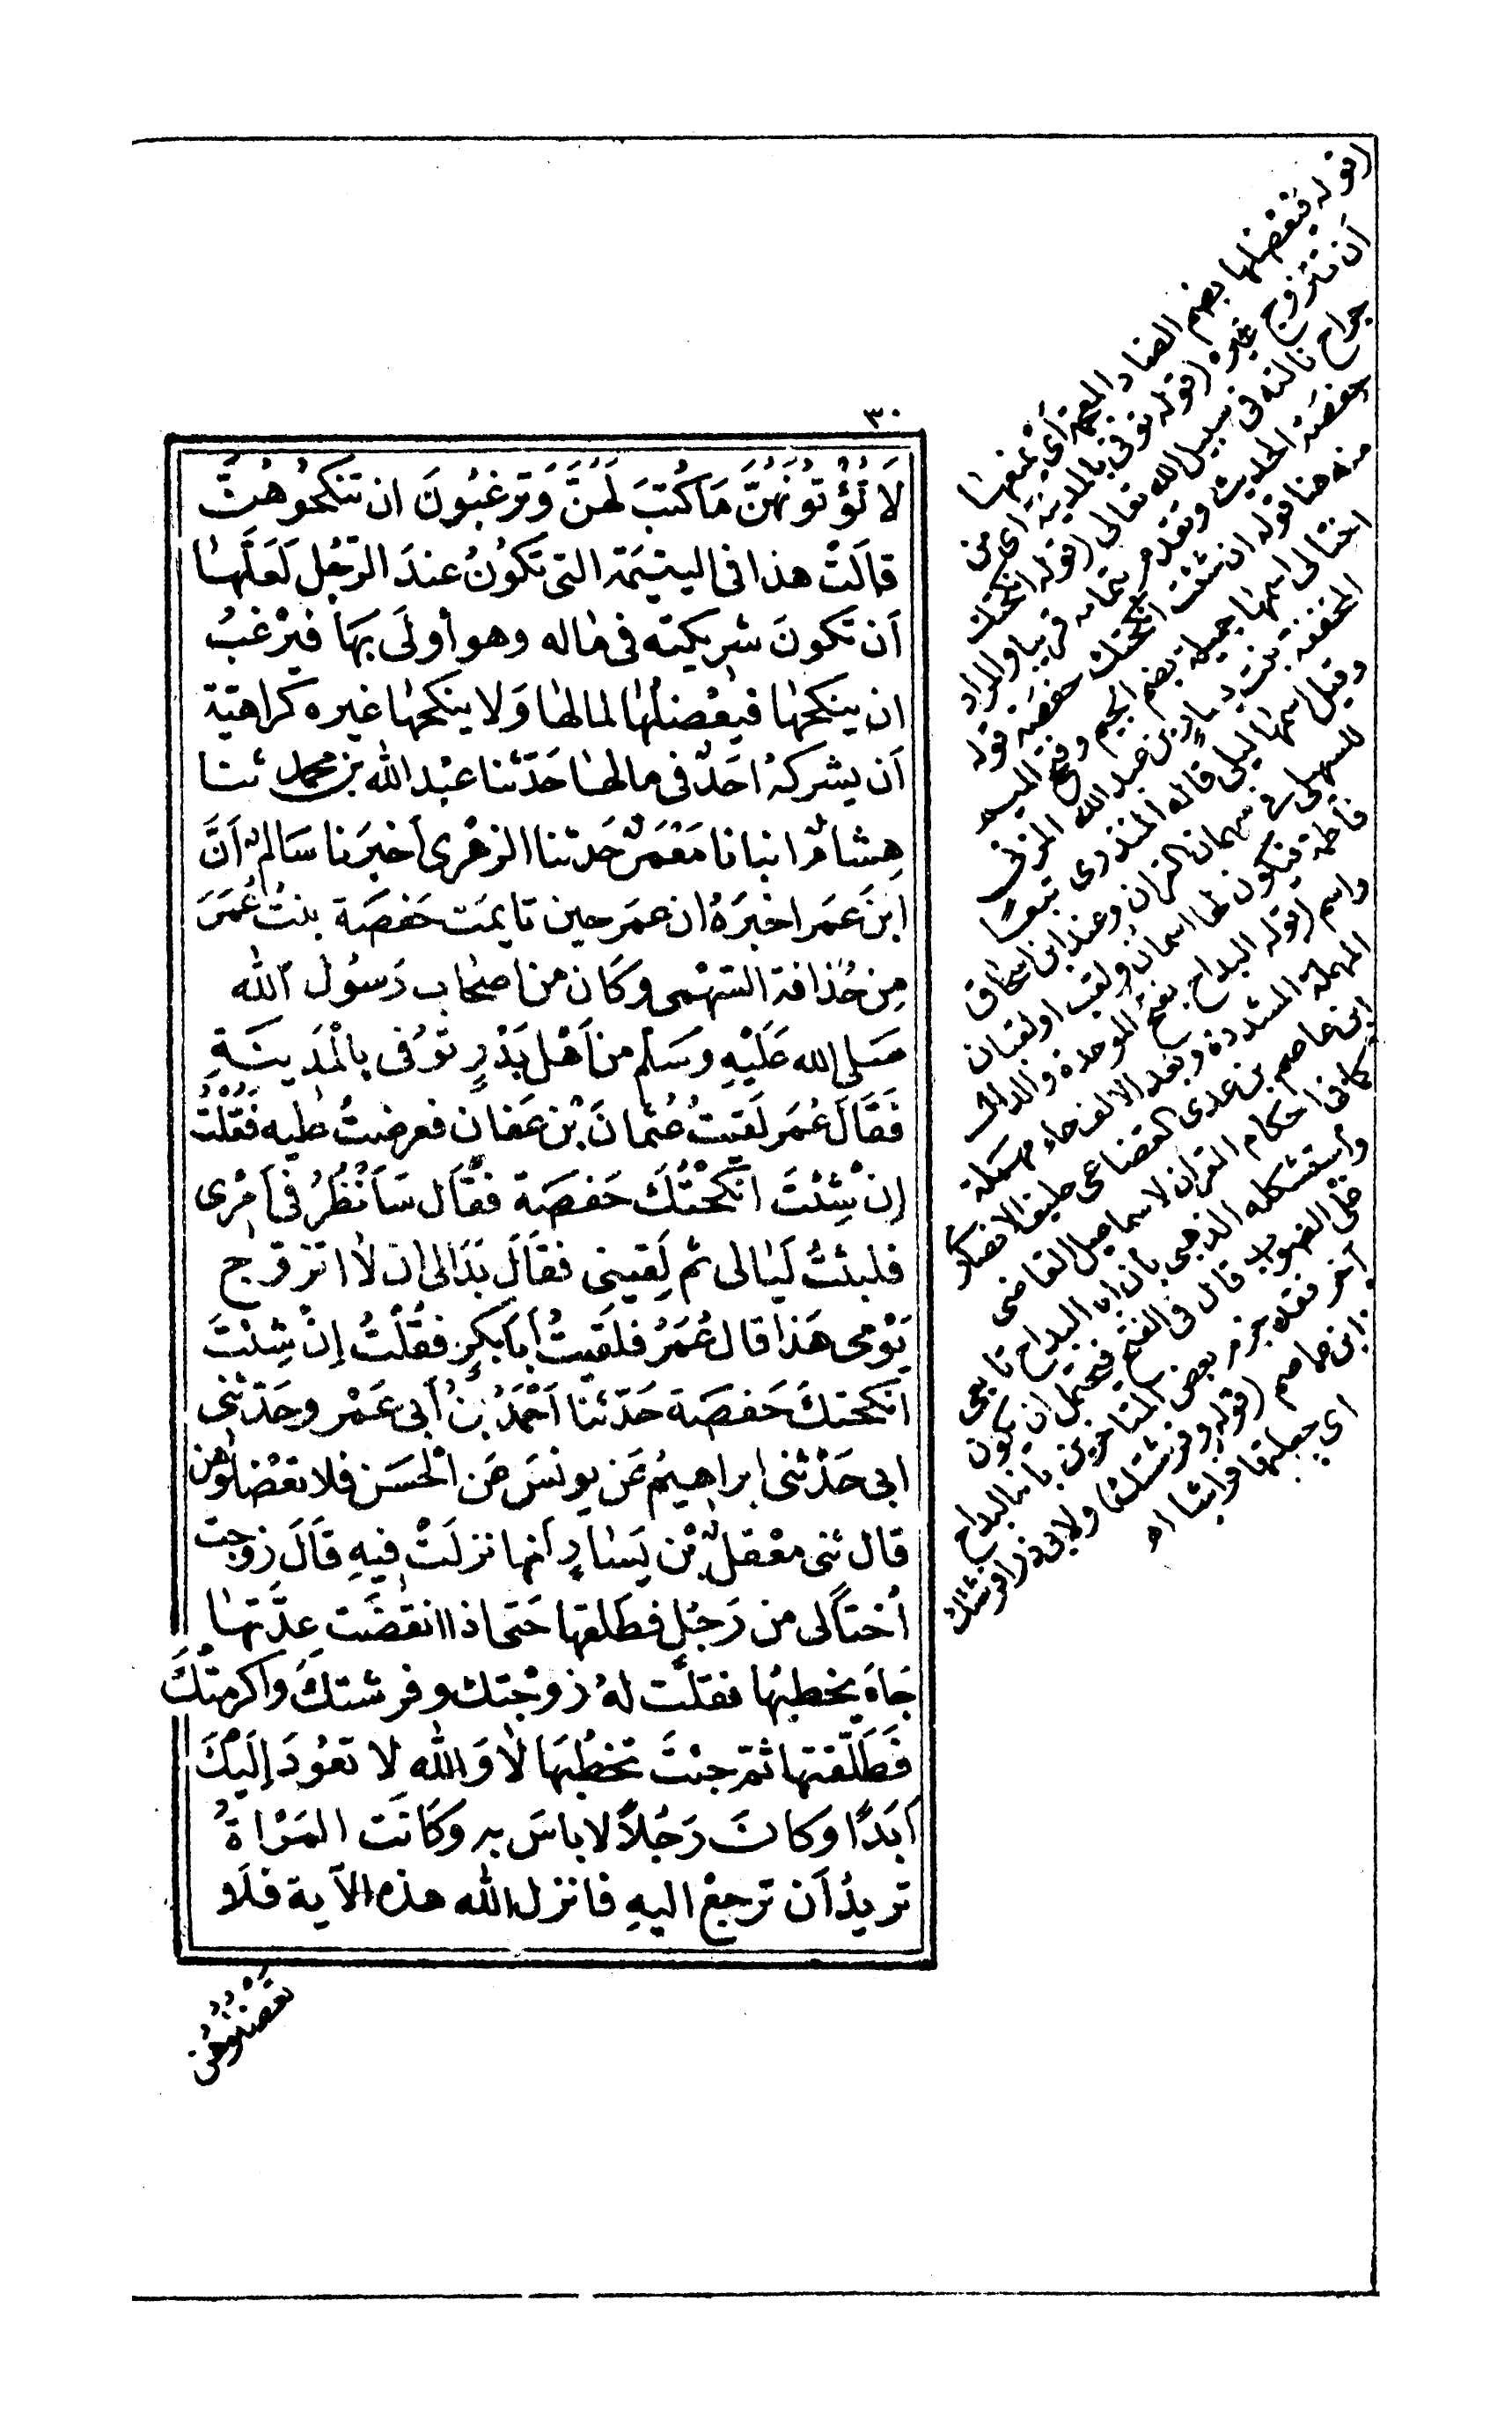 ٣٠
لَا تُؤْتُونَهُنَّ مَا كُتِبَ لَهُنَّ وَتَرغبُونَ ان تنكحُوهُنَّ
قالَتْ هذا فى اليتيمَة التى تكُونُ عندَ الرّجُل لَعَلَّهَا
أن تكونَ شريكته فى ماله وهو أولَى بهَا فيَرْغبُ
ان ينكحهَا فيعْضلُهَا لمالها وَلا ينكحهَا غيره كراهيّة
أن يشركهُ احَدٌ فى مالها حَدّثنا عبْد الله بن محمد ثنا
هِشامٌ انبانا مَعْمَرٌ حَدثنا الزهْرى أخبَرَنا سَالمٌ أنَّ
ابنَ عمَر اخبَرَهُ ان عمَر حين تايمَت حَفصَة بنتُ عُمَرَ
مِن حُذافة السّهْمى وكَان من اصحَاب رَسُول الله
صَلى الله عَلَيْهِ وسَلم من أهْل بَدْرٍ توُفى بالْمَدِينَةِ
فَقَالَ عُمَر لَقيتُ عُثمانَ بْن عَفان فعرضتُ عليه فَقُلْتُ
إنْ شِئتَ انكَحْتُكَ حَفصَة فقَال سَأَنْظُرُ فى أمْرى
فلبثتُ لَيَالى ثم لَقِينى فقَالَ بَدَا لى ان لا اتزوّج
يَوْمى هَذا قال عُمَرُ فلقيتُ أبَا بكرٍ فقُلْتُ إنْ شِئتَ
انكحتكَ حَفصَة حَدّثنا أحْمَدُ بنُ أبى عَمْرو حَدّثنى
ابى حَدّثنى ابراهيمُ عَن يونسَ عَن الْحَسَن فلا تعْضلُوهن
قال ثنى معْقلٌ بْن يَسَارٍ أنها نزلَتْ فيهِ قَالَ زوجت
أختًا لى من رَجُلٍ فطلقها حَتى اذا انقضَت عِدّتهَا
جَاءَ يخطبُهَا فقلت لهُ زوجْتك وفرشتكَ واكرمتكَ
فَطَلّقتها ثمّ جئتَ تخطُبهَا لَا وَالله لا تعُودَ إلَيْكَ
أبَدًا وكانَ رَجُلاً لا باسَ به وكَانَت المَرْاةُ
تريدُ أن ترجعْ اليهِ فانزل الله هذه الآية فلَا
تَعْضُلُوهُنَّ
(قوله فيعضلها بضم الضاد المعجمة أى يمنعها
أن تتزوج غيره (قوله توفى بالمدينة اى من
جراح نالته فى سبيل الله تعالى (قوله انكحتك
حفصة الحديث وتقدم بتمامه قريبا والمراد
منه هنا قوله ان شئت انكحتك حفصة قوله
اختا لى اسمها جميلة بضم الجيم وفتح الميم
المخففة بنت يسار بن عبد الله المزنى
وقيل اسمها ليلى قاله المنذرى تبعا
للسهيلى فى مبهمات القران وعند ابن اسحاق
فاطمة فيكون لها اسمان ولقب اولقبان
واسم (قوله البداح بفتح الموحدة والدال
المهملة المشددة وبعد الالف حاء مهملة
ابن عاصم بن عدى القضاعى حليف الانصار
كما فى احكام القران لاسماعيل القاضى
واستشكله الذهبى بان ابا البداح تابعى
على الصواب قال فى الفتح فيحتمل ان يكون
آخر فقد جزم بعض المتاخرين بانه البداح
ابن عاصم (قوله وفرشتك) ولابى ذر افرشتك
اى جعلتها فراشا اه